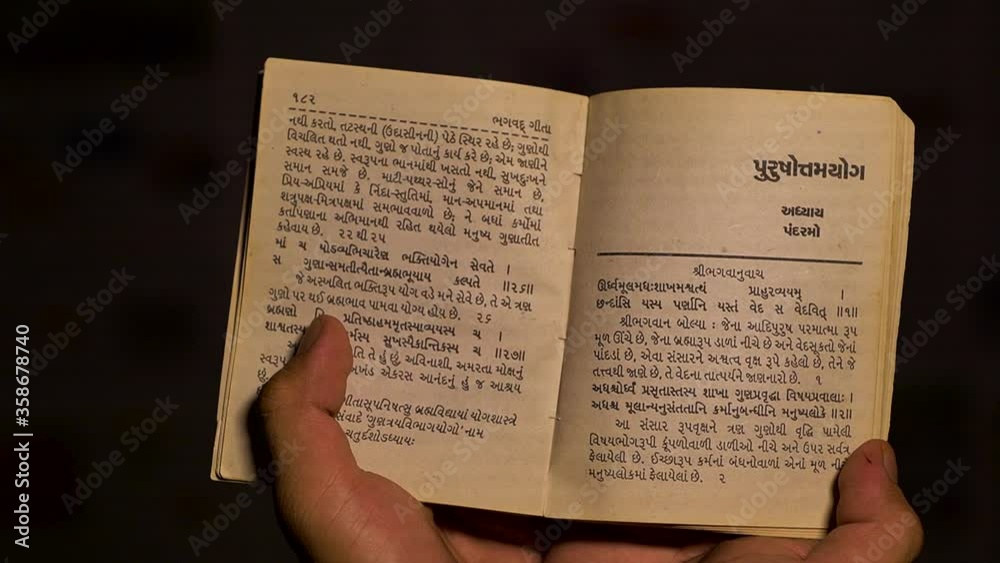 ૧૮૨ ભગવદ્ ગીતા
નથી કરતો, તટસ્થની (ઉદાસીનની) પેઠે સ્થિર રહે છે; ગુણોથી
વિચલિત થતો નથી, ગુણો જ પોતાનું કાર્ય કરે છે; એમ જાણીને
સ્વસ્થ રહે છે. સ્વરૂપના ભાનમાંથી ખસતો નથી, સુખદુઃખને
સમાન સમજે છે. માટી-પથ્થર-સોનું જેને સમાન છે,
પ્રિય-અપ્રિયમાં કે નિંદા-સ્તુતિમાં, માન-અપમાનમાં તથા
શત્રુપક્ષ-મિત્રપક્ષમાં સમભાવવાળો છે; ને બધાં કર્મોમાં
કર્તાપણાના અભિમાનથી રહિત થયેલો મનુષ્ય ગુણાતીત
કહેવાય છે. ૨૨ થી ૨૫
માં ચ યોડવ્યભિચારેણ ભક્તિયોગેન સેવતે ।
સ ગુણાન્સમતીત્યૈતાન્બ્રહ્મભૂયાય કલ્પતે ॥૨૬॥
જે અસ્ખલિત ભક્તિરૂપ યોગ વડે મને સેવે છે, તે એ ત્રણ
ગુણો પર થઈ બ્રહ્મભાવ પામવા યોગ્ય હોય છે. ૨૬
બ્રહ્મણો પ્રતિષ્ઠાહમમૃતસ્યાવ્યયસ્ય ચ ।
શાશ્વતસ્ય સુખસ્યૈકાન્તિકસ્ય ચ ॥૨૭॥
તે હું છું. અવિનાશી, અમરતા મોક્ષનું
સ્વરૂપ અખંડ એકરસ આનંદનું હું જ આશ્રય
છું.
બ્રહ્મવિદ્યાયાં યોગશાસ્ત્રે
'ગુણત્રયવિભાગયોગો' નામ
પુરુષોત્તમયોગ
અધ્યાય
પંદરમો
શ્રીભગવાનુવાચ
ઊર્ધ્વમૂલમધઃશાખમશ્વત્થં પ્રાહુરવ્યયમ્ ।
છન્દાંસિ યસ્ય પર્ણાનિ યસ્તં વેદ સ વેદવિત્ ॥૧॥
શ્રીભગવાન બોલ્યા : જેના આદિપુરુષ પરમાત્મા રૂપ
મૂળ ઊંચે છે, જેના બ્રહ્મારૂપ ડાળાં નીચે છે અને વેદસૂક્તો જેનાં
પાંદડાં છે, એવા સંસારને અશ્વત્થ વૃક્ષ રૂપે કહેલો છે, તેને જે
તત્ત્વથી જાણે છે, તે વેદના તાત્પર્યને જાણનારો છે. ૧
અધશ્ચોર્ધ્વં પ્રસૃતાસ્તસ્ય શાખા ગુણપ્રવૃદ્ધા વિષયપ્રવાલાઃ।
અધશ્ચ મૂલાન્યનુસંતતાનિ કર્માનુબન્ધીનિ મનુષ્યલોકે ॥૨॥
આ સંસાર રૂપવૃક્ષને ત્રણ ગુણોથી વૃદ્ધિ પામેલી
વિષયભોગરૂપી કૂંપળોવાળી ડાળીઓ નીચે અને ઉપર સર્વત્ર
ફેલાયેલી છે. ઈચ્છારૂપ કર્મનાં બંધનોવાળાં એનાં મૂળ નીચે
મનુષ્યલોકમાં ફેલાયેલાં છે. ૨
Adobe Stock | #358678740